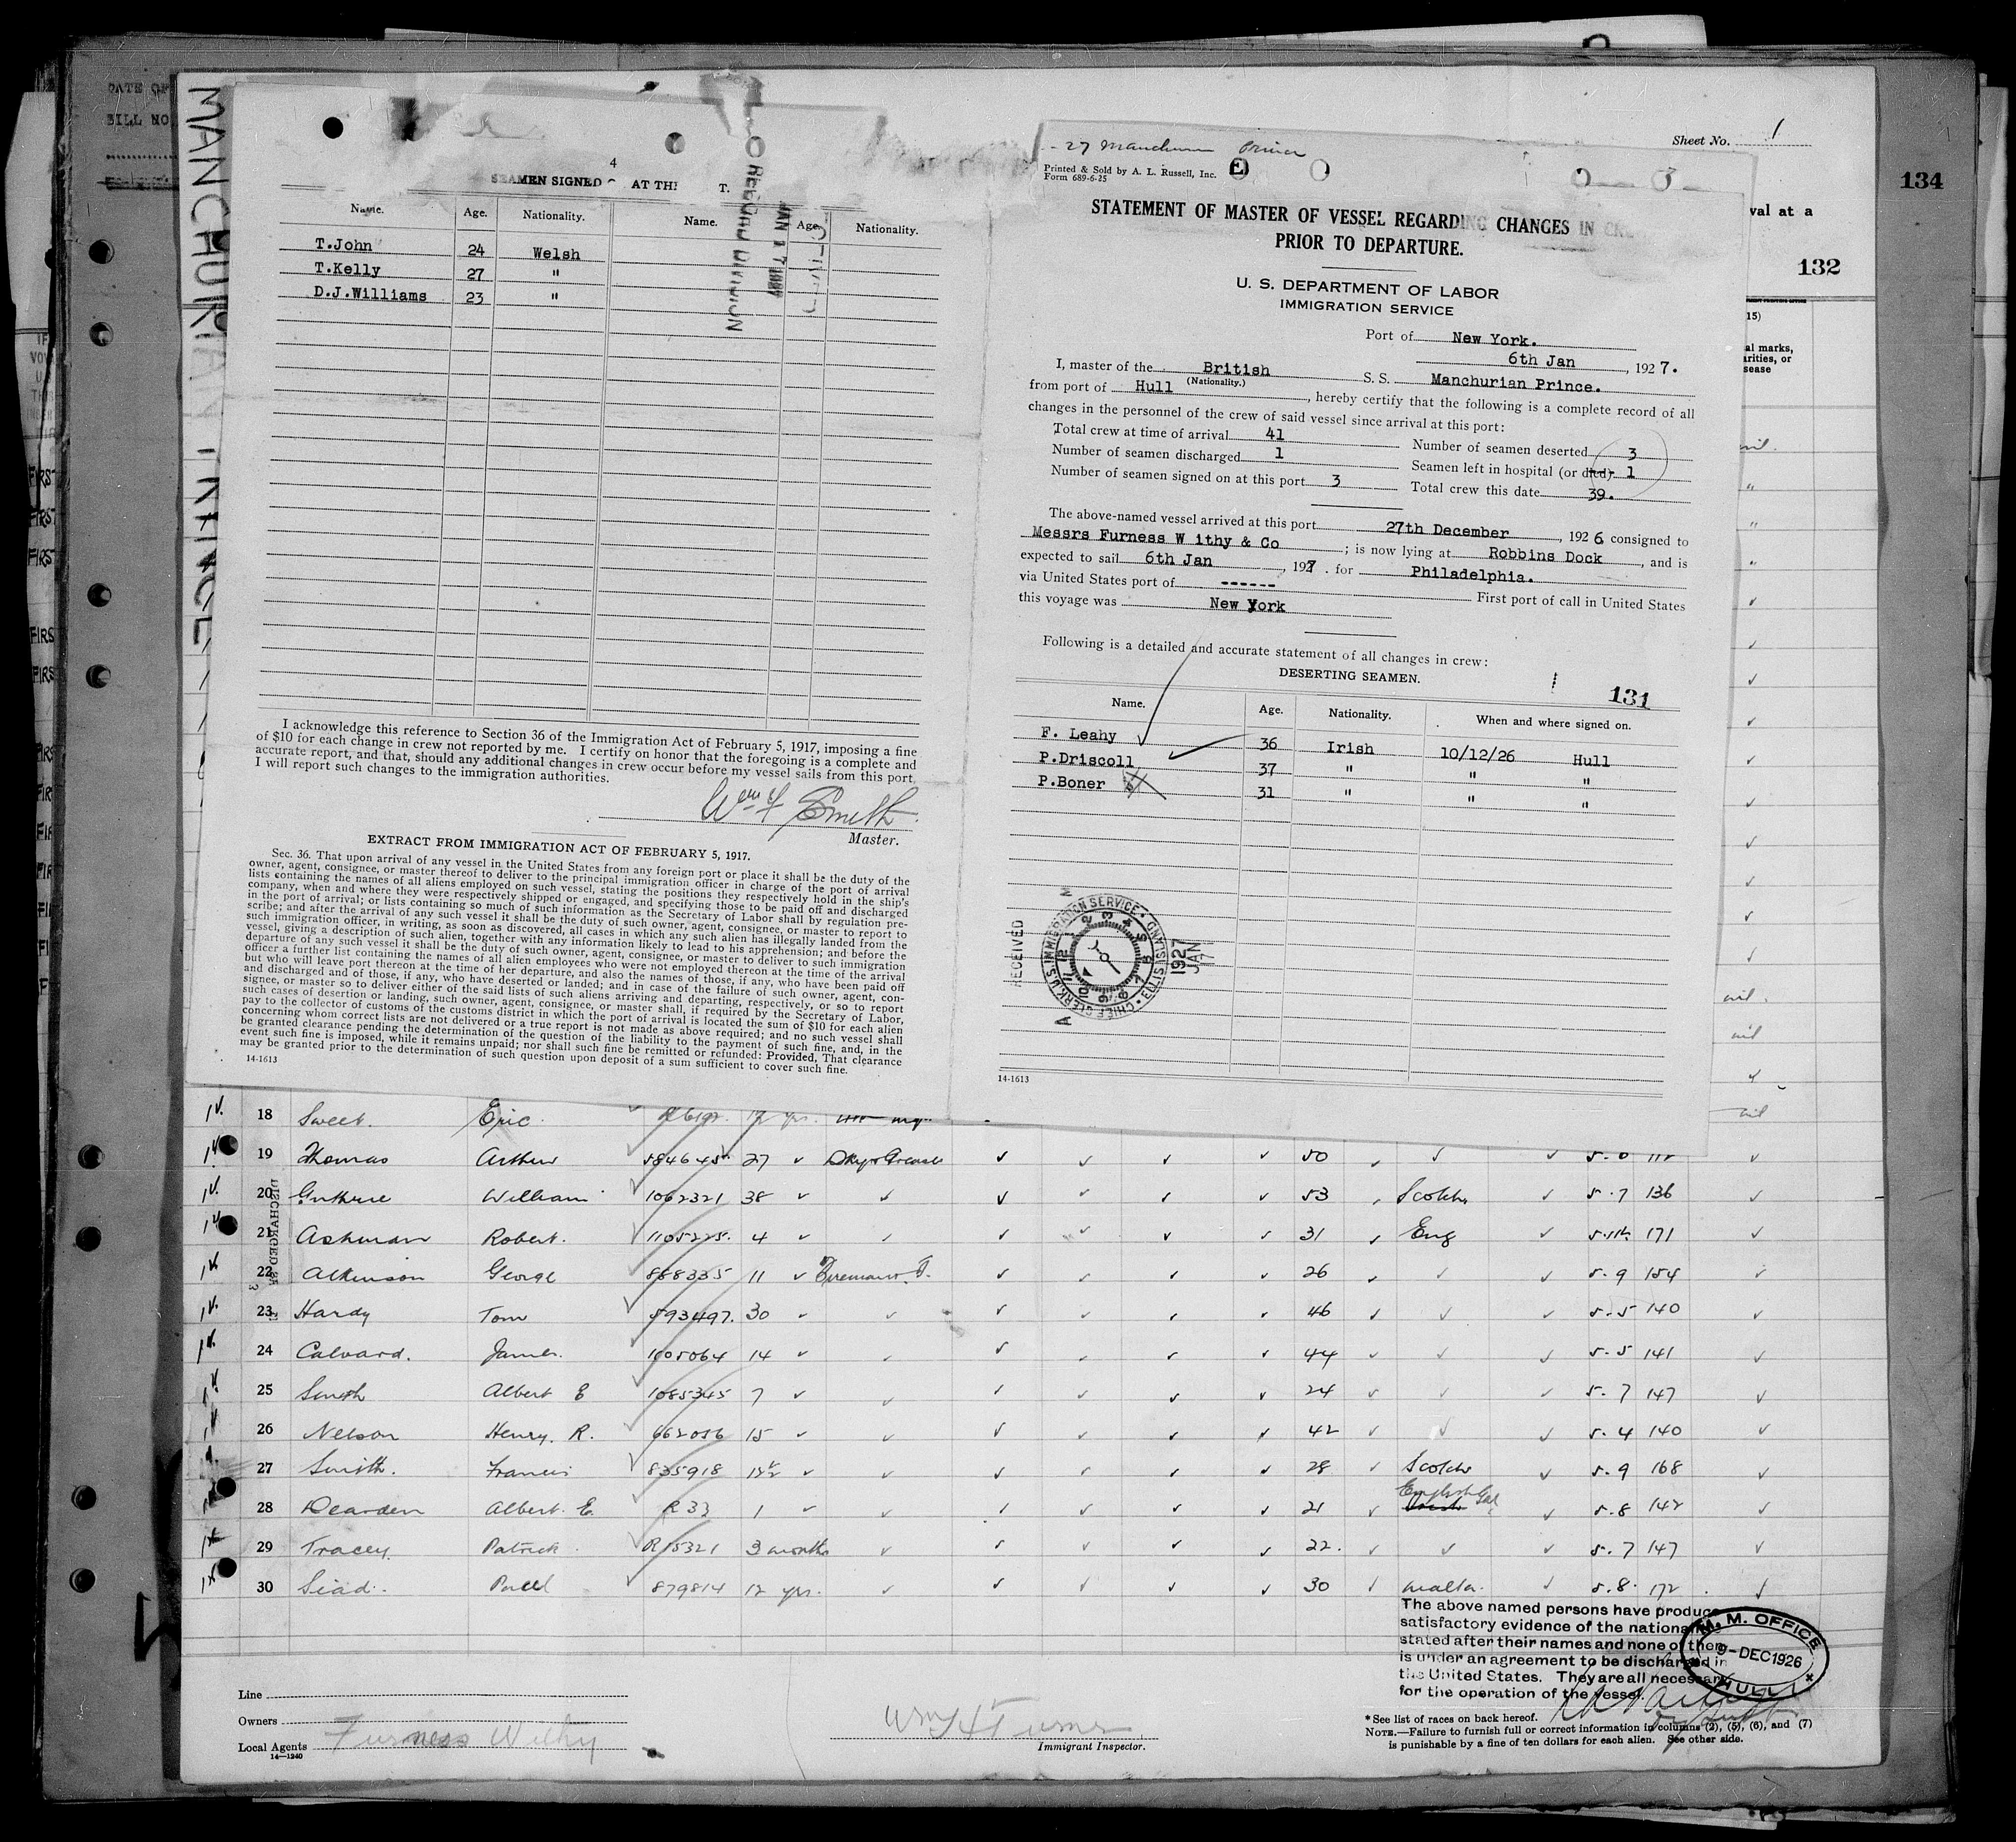 134
Sheet No. 1
132
MANCHURIAN PRINCE
DATE OF
BILL NO.
4
SEAMEN SIGNED AT THI T.
RECORD DIVISION
Name. Age. Nationality. Name. Age. Nationality.
T.John 24 Welsh
T.Kelly 27 "
D.J.Williams 23 "
I acknowledge this reference to Section 36 of the Immigration Act of February 5, 1917, imposing a fine
of $10 for each change in crew not reported by me. I certify on honor that the foregoing is a complete and
accurate report, and that, should any additional changes in crew occur before my vessel sails from this port,
I will report such changes to the immigration authorities.
Wm F Smith
Master.
EXTRACT FROM IMMIGRATION ACT OF FEBRUARY 5, 1917.
Sec. 36. That upon arrival of any vessel in the United States from any foreign port or place it shall be the duty of the
owner, agent, consignee, or master thereof to deliver to the principal immigration officer in charge of the port of arrival
lists containing the names of all aliens employed on such vessel, stating the positions they respectively hold in the ship's
company, when and where they were respectively shipped or engaged, and specifying those to be paid off and discharged
in the port of arrival; or lists containing so much of such information as the Secretary of Labor shall by regulation pre-
scribe; and after the arrival of any such vessel it shall be the duty of such owner, agent, consignee, or master to report to
such immigration officer, in writing, as soon as discovered, all cases in which any such alien has illegally landed from the
vessel, giving a description of such alien, together with any information likely to lead to his apprehension; and before the
departure of any such vessel it shall be the duty of such owner, agent, consignee, or master to deliver to such immigration
officer a further list containing the names of all alien employees who were not employed thereon at the time of the arrival
but who will leave port thereon at the time of her departure, and also the names of those, if any, who have been paid off
and discharged and of those, if any, who have deserted or landed; and in case of the failure of such owner, agent, con-
signee, or master so to deliver either of the said lists of such aliens arriving and departing, respectively, or so to report
such cases of desertion or landing, such owner, agent, consignee, or master shall, if required by the Secretary of Labor,
pay to the collector of customs of the customs district in which the port of arrival is located the sum of $10 for each alien
concerning whom correct lists are not delivered or a true report is not made as above required; and no such vessel shall
be granted clearance pending the determination of the question of the liability to the payment of such fine, and, in the
event such fine is imposed, while it remains unpaid; nor shall such fine be remitted or refunded: Provided, That clearance
may be granted prior to the determination of such question upon deposit of a sum sufficient to cover such fine.
14-1613
27 Manchurian Prince
Printed & Sold by A. L. Russell, Inc.
Form 689-6-25
STATEMENT OF MASTER OF VESSEL REGARDING CHANGES IN CRE
PRIOR TO DEPARTURE.
U. S. DEPARTMENT OF LABOR
IMMIGRATION SERVICE
Port of New York.
6th Jan , 1927.
I, master of the British S. S. Manchurian Prince.
(Nationality.)
from port of Hull , hereby certify that the following is a complete record of all
changes in the personnel of the crew of said vessel since arrival at this port:
Total crew at time of arrival 41 Number of seamen deserted 3
Number of seamen discharged 1 Seamen left in hospital (or died) 1
Number of seamen signed on at this port 3 Total crew this date 39.
The above-named vessel arrived at this port 27th December , 1926 consigned to
Messrs Furness W ithy & Co ; is now lying at Robbins Dock , and is
expected to sail 6th Jan , 1927 . for Philadelphia.
via United States port of ------ First port of call in United States
this voyage was New York
Following is a detailed and accurate statement of all changes in crew:
DESERTING SEAMEN.
131
Name. Age. Nationality. When and where signed on.
F. Leahy 36 Irish 10/12/26 Hull
P.Driscoll 37 " " "
P.Boner 31 " " "
RECEIVED
CHIEF CLERK U.S. IMMIGRATION SERVICE ELLIS ISLAND
1927 JAN 17
14-1613
val at a
15)
al marks,
arities, or
sease
nil
18 Sweet. Eric
19 Thomas Arthur 584645 27 50
20 Guthrie William 1062321 38 53 Scotch 5.7 136
21 Ashman Robert. 1105225. 4 31 Eng 171
22 Atkinson George 888335 11 Fireman. T. 26 5.9 154
23 Hardy Tom 593497. 30 46 5.5 140
24 Calvard. James. 1005064 14 44 5.5 141
25 Smith Albert E 1085345 7 24 5.7 147
26 Nelson Henry. R. 662056 15 42 5.4 140
27 Smith. Francis 835918 28 Scotch 5.9 168
28 Dearden Albert. E. R33 1 21 English 5.8 142
29 Tracey. Patrick R15321 3 months 22. 5.7 147
30 Siad. 879814 12 yrs. 30 Malta. 5.8. 172
The above named persons have produce
satisfactory evidence of the national
stated after their names and none of them
is under an agreement to be discharged in
the United States. They are all necessary
for the operation of the vessel.
M. M. OFFICE
9-DEC1926
HULL
Line
Owners
Local Agents Furness Withy
14-1240
Immigrant Inspector.
*See list of races on back hereof.
NOTE.—Failure to furnish full or correct information in columns (2), (5), (6), and (7)
is punishable by a fine of ten dollars for each alien. See other side.